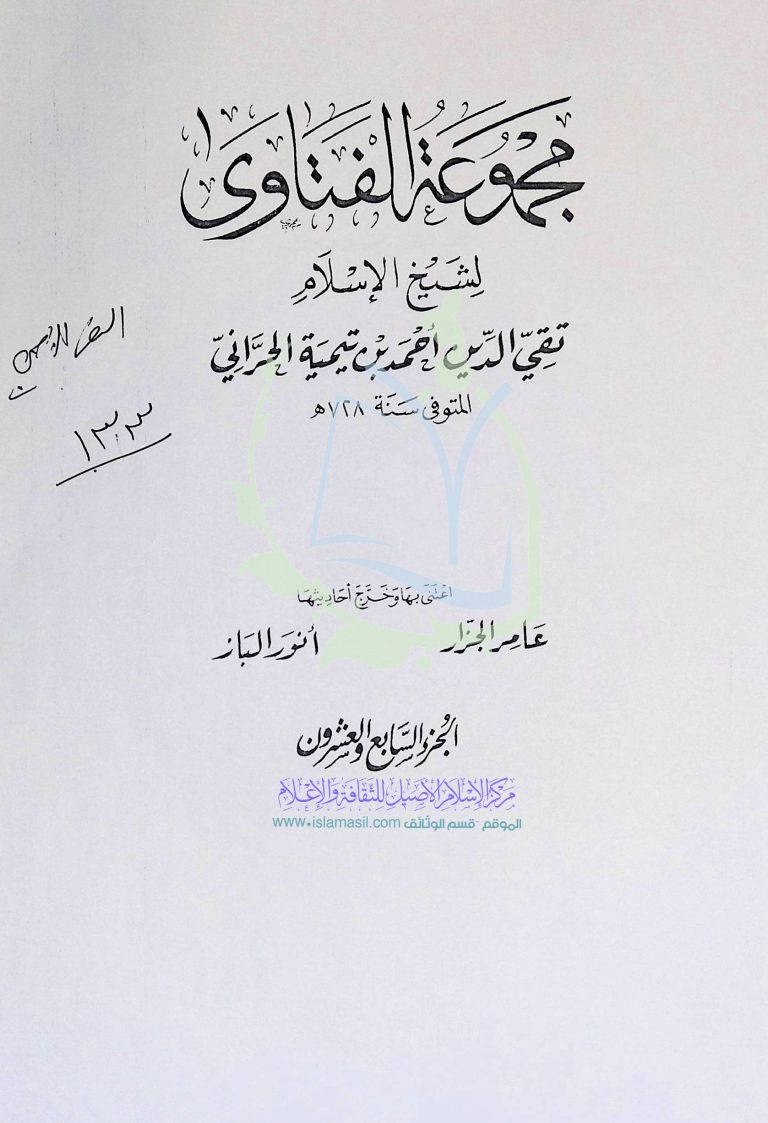 مَجْمُوعَةُ الفَتَاوَىٰ
لِشَيْخِ الإِسْلَامِ
تَقِيّ الدِّين أَحْمَد بْن تيمِيَة الحَرَّانِيّ
المتوفى سَنَة ٧٢٨هـ
١٣٣
اعْتَنَى بِهَا وَخَرَّجَ أحَادِيثهَا
عَامِر الجَزَّار
أَنْوَر البَاز
الجُزْءُ السَّابِع وَالعِشْرُون
مَركَز الإِسْلَام الأَصِيل لِلثَّقَافَةِ وَالإِعْلَام
الموقع - قسم الوثائق www.islamasil.com